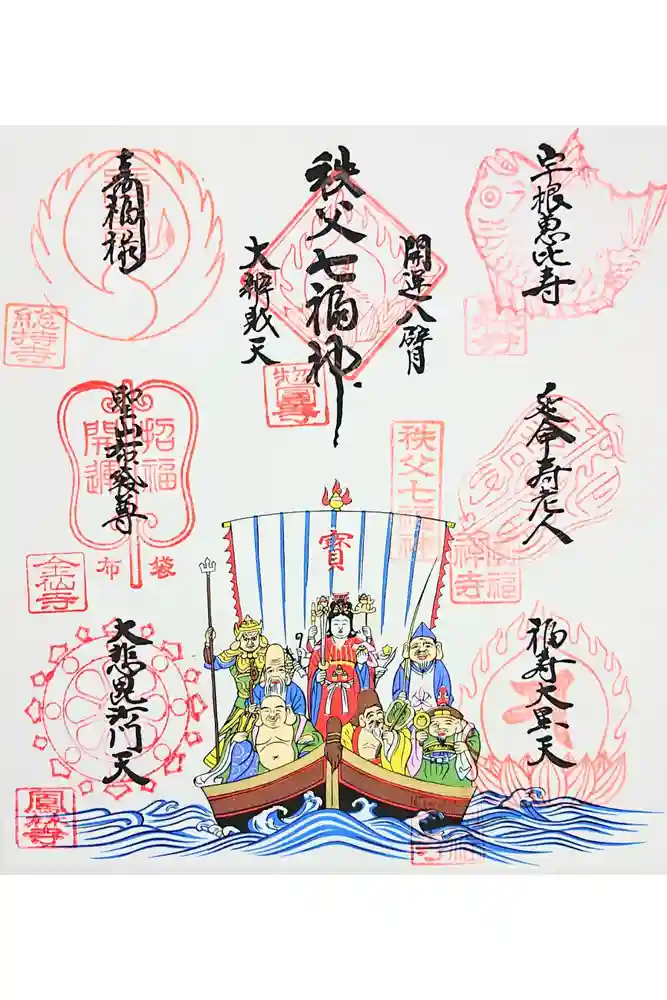 宇根恵比寿
秩父七福神
開運八臂
大辨財天
寿福禄
総持寺
惣圓寺
延命寿老人
秩父七福神
聖山布袋尊
招福
開運
布袋
金仙寺
寶
福寿大黒天
大悲毘沙門天
鳳林寺